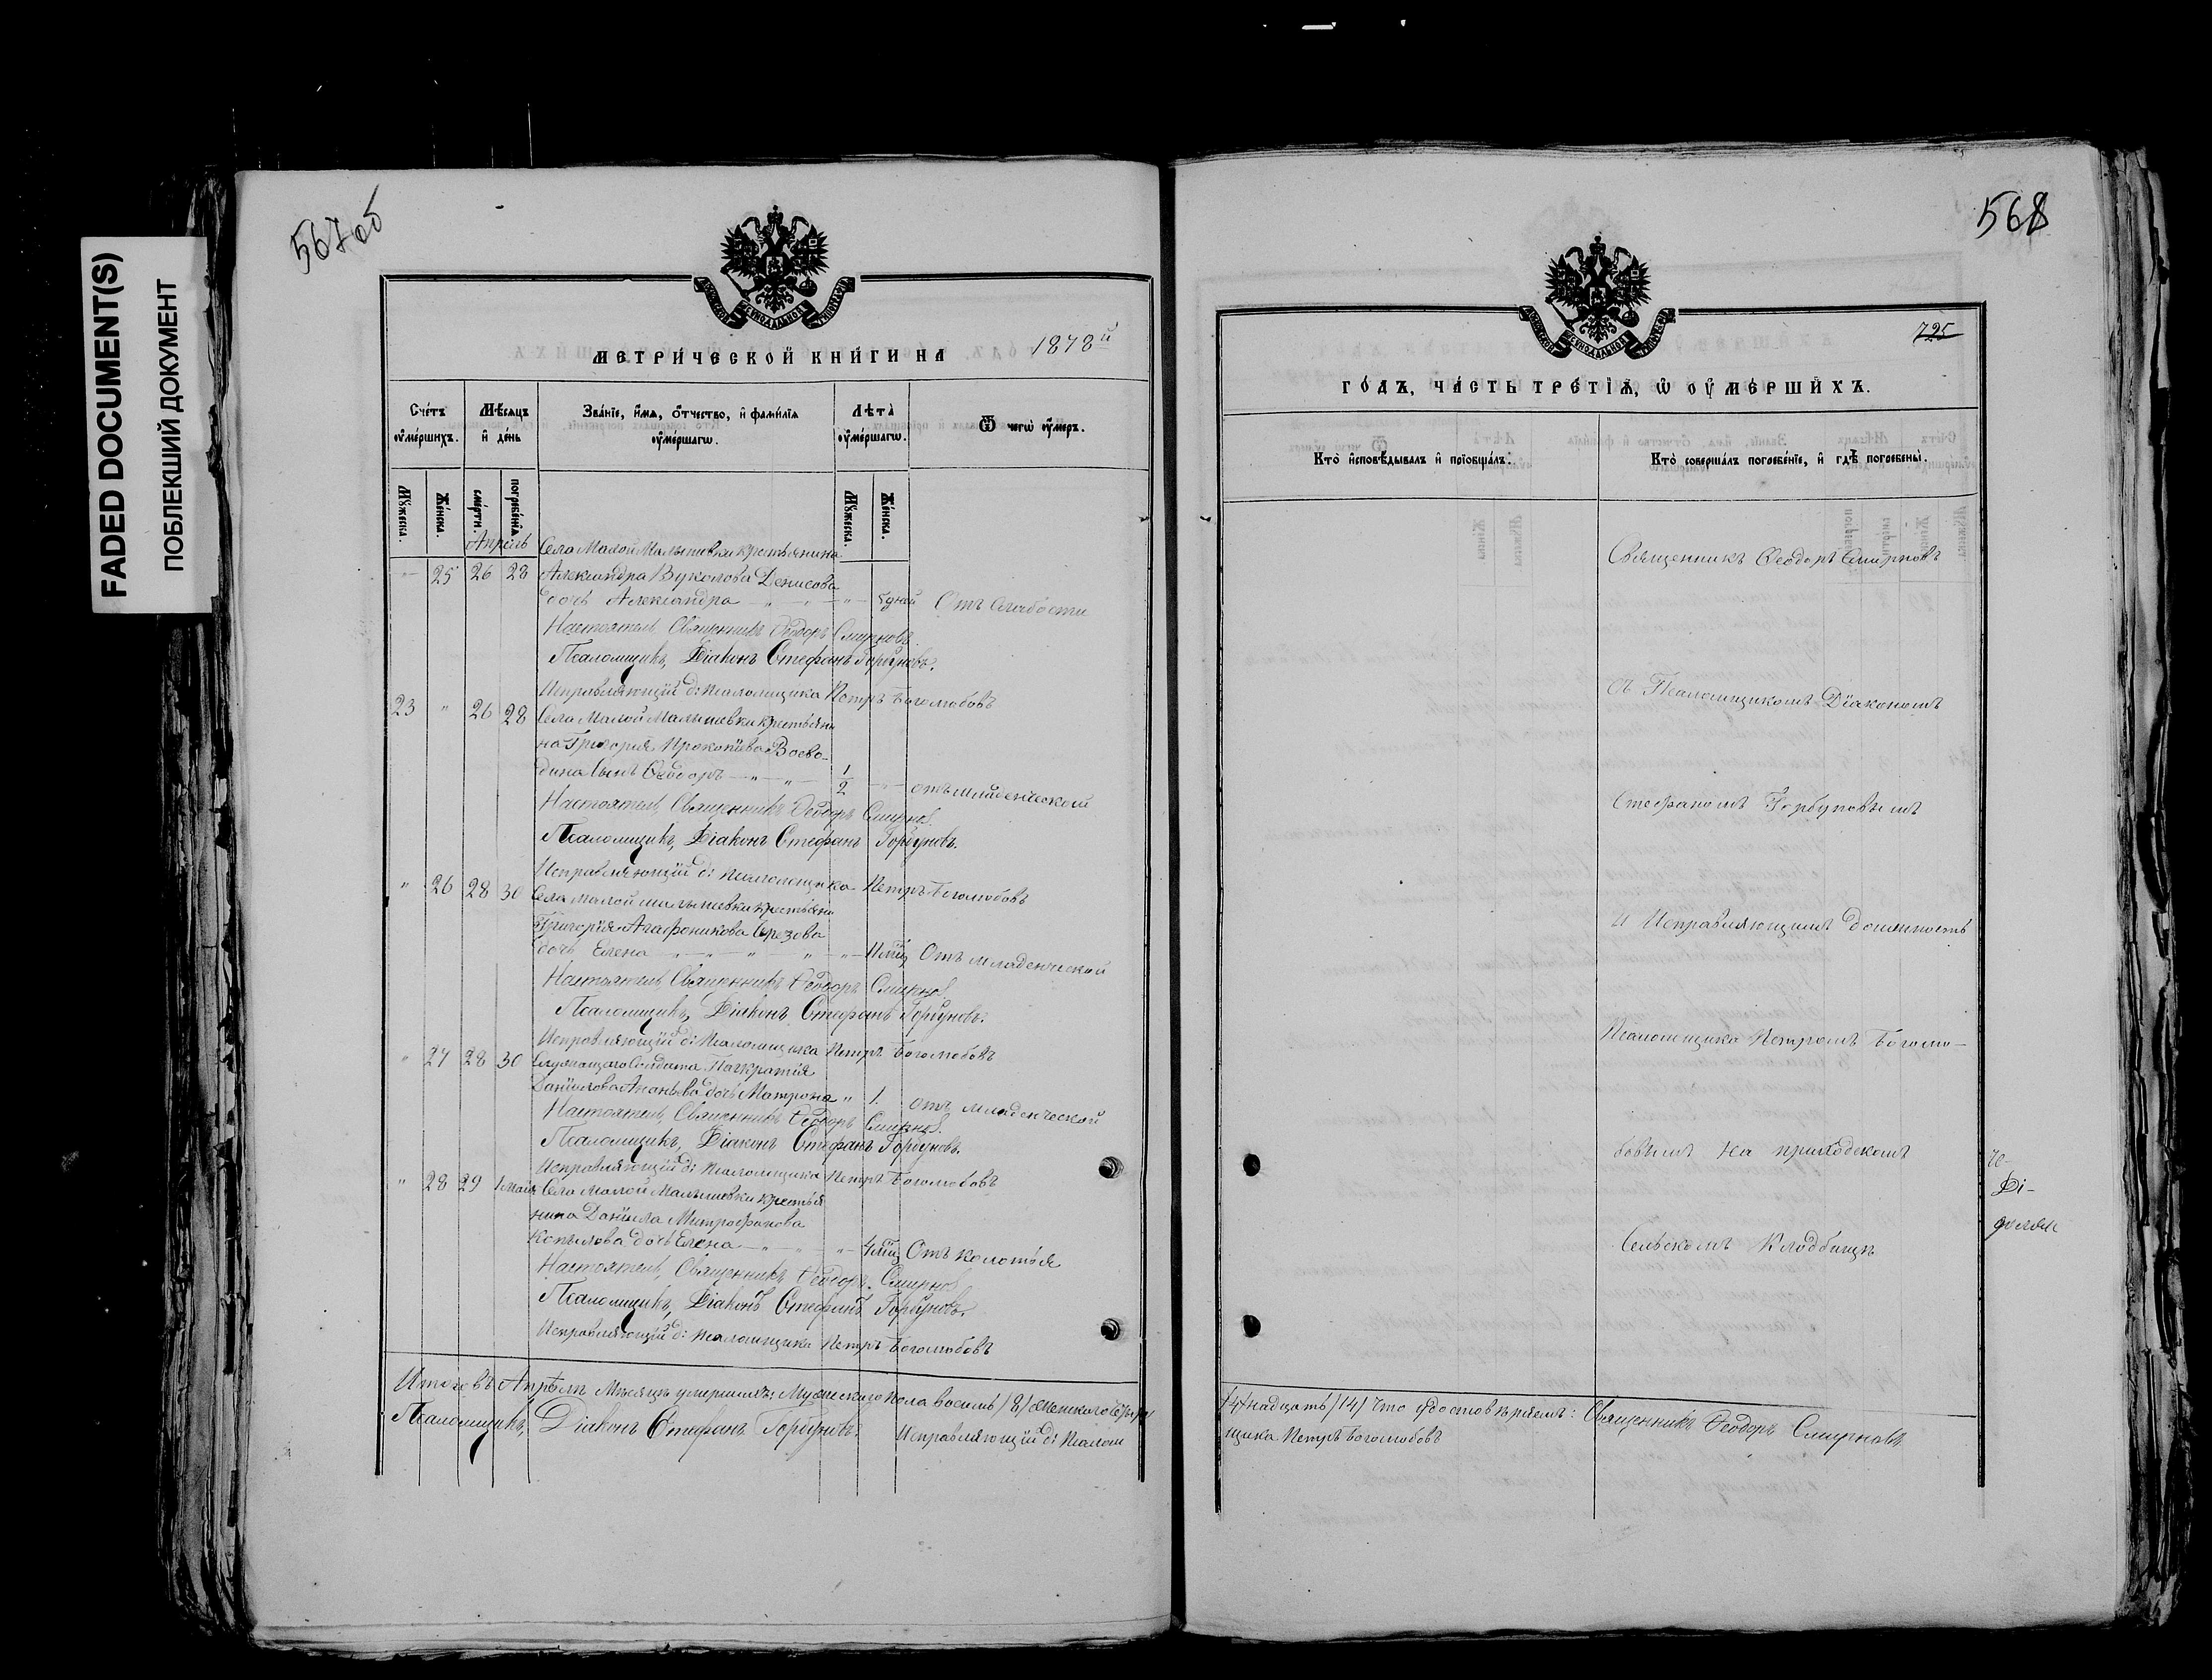 FADED DOCUMENT(S)
ПОБЛЕКШИЙ ДОКУМЕНТ
567об
МЕТРИ́ЧЕСКОЙ КНИ́ГИ НА 1878й
Сче́тъ ᲂу҆ме́ршихъ.
Мѣ́сяцъ и҆ де́нь
Зва́нїе, и҆́мѧ, ѻ҆́тчество, и҆ фами́лїѧ ᲂу҆ме́ршагѡ.
Лѣта̀ ᲂу҆ме́ршагѡ.
Ѿ чегѡ̀ ᲂу҆́меръ.
Мꙋ́жеска.
Же́нска.
сме́рти.
погребе́нїѧ.
Мꙋ́жеска.
Же́нска.
Апрель Села Малой Малышевки крестьянина
" 25 26 28 Александра Вуколова Денисова
дочь Александра " " " 5 дней Отъ слабости
Настоятель Священникъ Ѳеодоръ Смирновъ.
Псаломщикъ, Діаконъ Стефанъ Горбуновъ.
Исправляющій д: Псаломщика Петръ Боголюбовъ
23 " 26 28 Села Малой Малышевки крестьяни
на Григорія Прокопіева Воево-
дина сынъ Ѳеодоръ " " 1/2 " отъ младенческой
Настоятель, Священникъ Ѳеодоръ Смирнов.
Псаломщикъ, Діаконъ Стефанъ Горбуновъ.
Исправляющій д: Псаломщика Петръ Боголюбовъ
" 26 28 30 Села малой малышевки крестьяни
Григорія Агафоникова
дочь Елена " " " " " Отъ младенческой
Настоятель Священникъ Ѳеодоръ Смирнов.
Псаломщикъ, Діаконъ Стефанъ Горбуновъ.
Исправляющій д: Псаломщика Петръ Боголюбовъ
" 27 28 30 Служащаго Солдата Панкратія
Даніилова Ананьева дочь Матрона " 1. отъ младенческой
Настоятель, Священникъ Ѳеодоръ Смирнов.
Псаломщикъ, Діаконъ Стефанъ Горбуновъ.
Исправляющій д: Псаломщика Петръ Боголюбовъ
" 28 29 1 Мая Села Малой Малышевки крестья
нина Даніила Митрофанова
Копылова дочь Елена " " " 4 мѣц Отъ колотья
Настоятель, Священникъ Ѳеодоръ Смирнов.
Псаломщикъ, Діаконъ Стефанъ Горбуновъ.
Исправляющій д: псаломщика Петръ Боголюбовъ
Итого въ Апрѣлѣ Мѣсяцѣ умершихъ: Мужескаго пола восемь /8/ женскаго четыр
Псаломщикъ, Діаконъ Стефанъ Горбуновъ. Исправляющій д: Псалом
568
725
ГО́ДЪ, ЧА́СТЬ ТРЕ́ТЇѦ, Ѡ҆ ᲂУ҆МЕ́РШИХЪ.
Кто̀ и҆сповѣ́дывалъ и҆ прїѡбща́лъ.
Кто̀ соверша́лъ погребе́нїе, и҆ гдѣ̀ погребены̀.
Священникъ Ѳеодоръ Смирновъ
съ Псаломщикомъ Діакономъ
Стефаномъ Горбуновымъ
и Исправляющимъ должность
Псаломщика Петромъ Боголю-
бовымъ на приходскомъ
Сельскомъ Кладбищѣ
Ді-
/4/надцать /14/ Что удостовѣряемъ: Священникъ Ѳеодоръ Смирновъ
щика Петръ Боголюбовъ